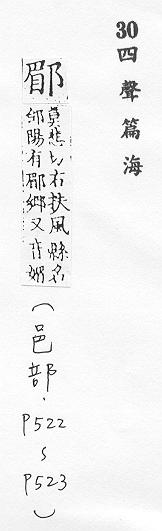 30四聲篇海
郿
莫悲切右扶風縣名
郃陽有郿鄉又音媚
(邑部.P522~P523)